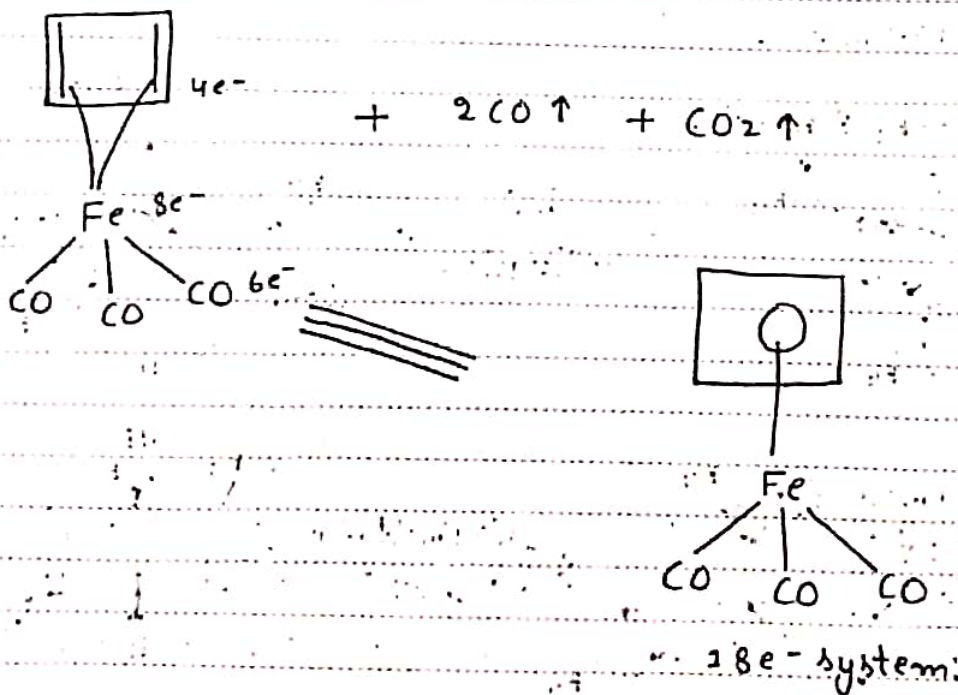 4e-
+ 2CO↑ + CO2↑
Fe 8e-
CO CO CO 6e-
Fe
CO CO CO
18e- system